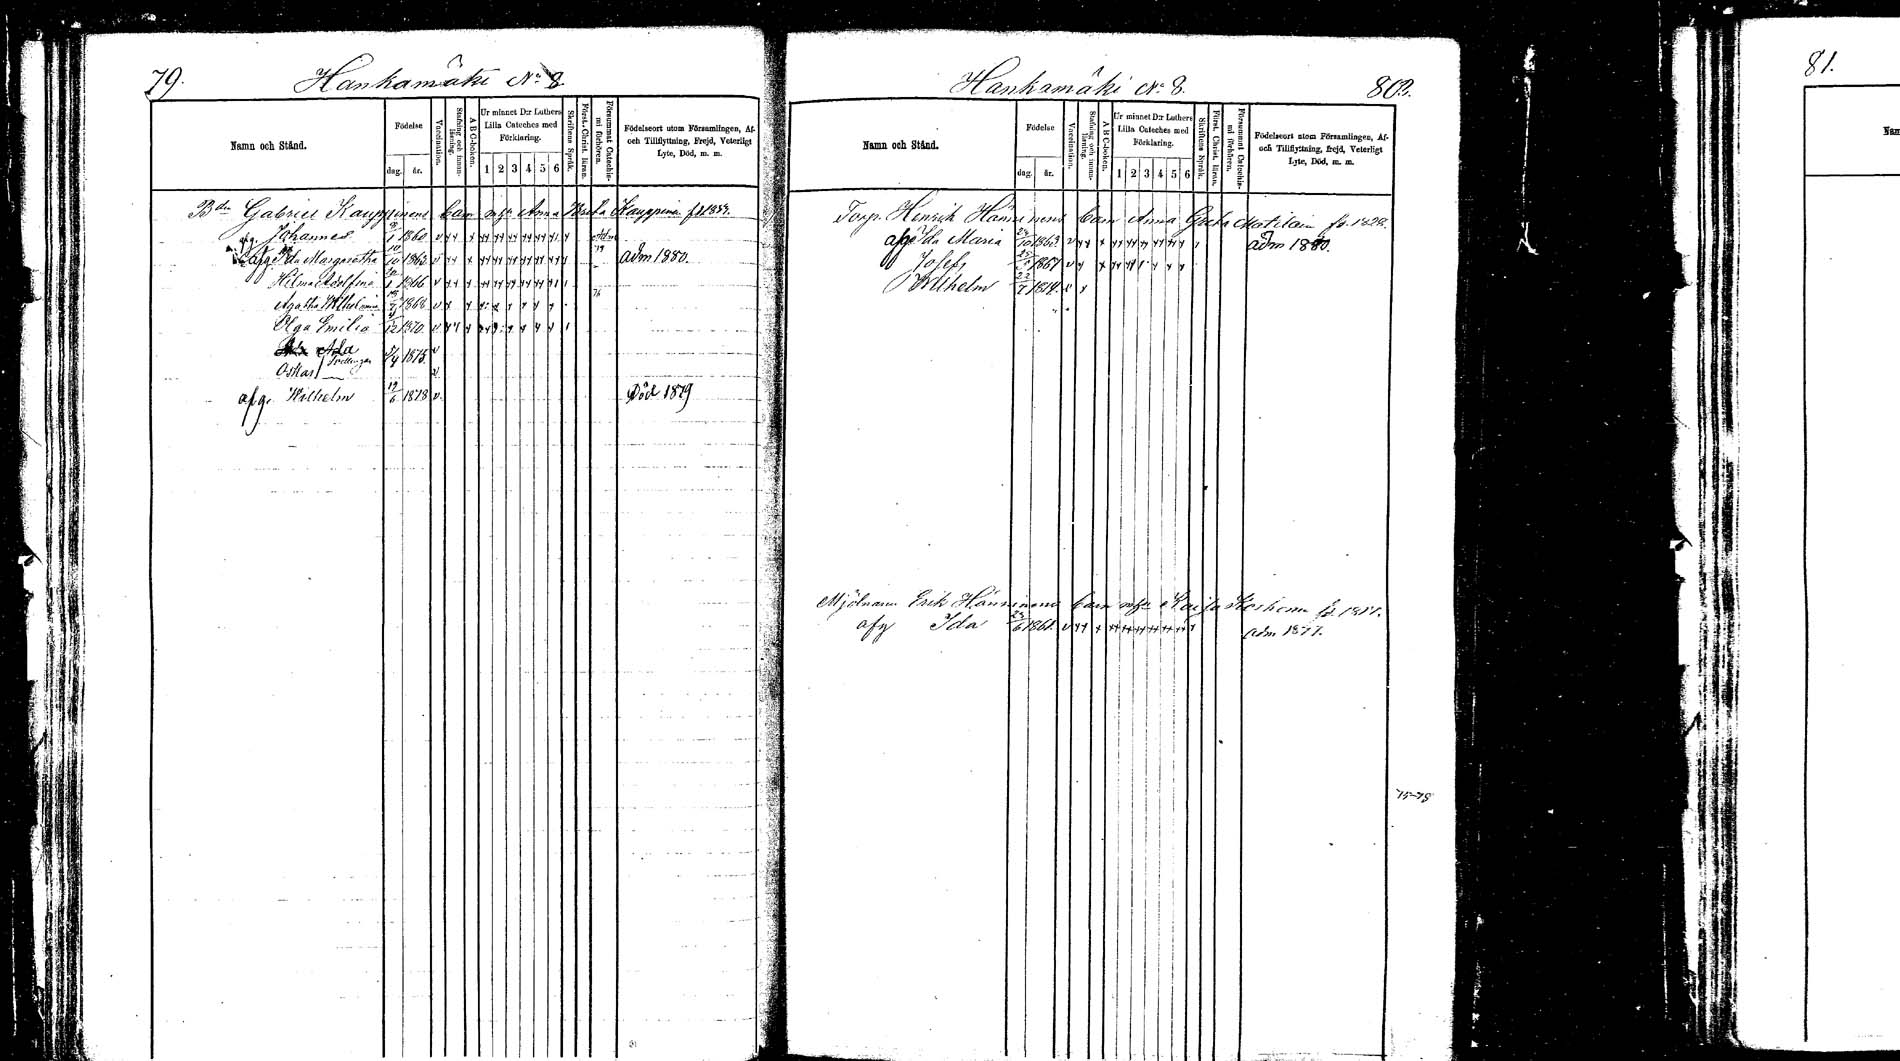 79.
Hankamäki No 8
Namn och Stånd.
Födelse
dag.
år.
Vaccination.
Stafning och innanläsning.
A B C-boken.
Ur minnet D:r Luthers Lilla Cateches med Förklaring.
1 2 3 4 5 6
Skriftens Språk.
Först. Christ. läran.
Försummat Catechismi förhören.
Födelseort utom Församlingen, Af- och Tillflyttning, Frejd, Veterligt Lyte, Död, m. m.
Bdn Gabriel Kauppinens barn m hu Anna Brita Kauppinen f. 1839.
afg. Johannes 1 1860 v
afg Ida Margaretha 10 1863 v Adm 1880.
Hilma Adolfina 1 1866 v
Agatha Wilhelmina 1868 v
Olga Emilia 12 1870 v
Ada
Oskar Tvillingar 4 1875 v v
afg. Wilhelm 19/6 1878 v Död 1879
Hankamäki No 8
80.
Namn och Stånd.
Födelse
dag.
år.
Vaccination.
Stafning och innanläsning.
A B C-boken.
Ur minnet D:r Luthers Lilla Cateches med Förklaring.
1 2 3 4 5 6
Skriftens Språk.
Först. Christ. läran.
Försummat Catechismi förhören.
Födelseort utom Församlingen, Af- och Tillflyttning, frejd, Veterligt Lyte, Död, m. m.
Torp. Henrik Hänninens barn Anna Greta Matilain f. 1828.
afg Ida Maria 10 1863 v Adm 1880.
Josef 1867 v
Wilhelm 1874. v
Mjölnaren Erik Hänninens barn m hu Kaisa Koskonen fd 1817.
afg Ida 6 1861. v Adm 1877.
75-78
81.